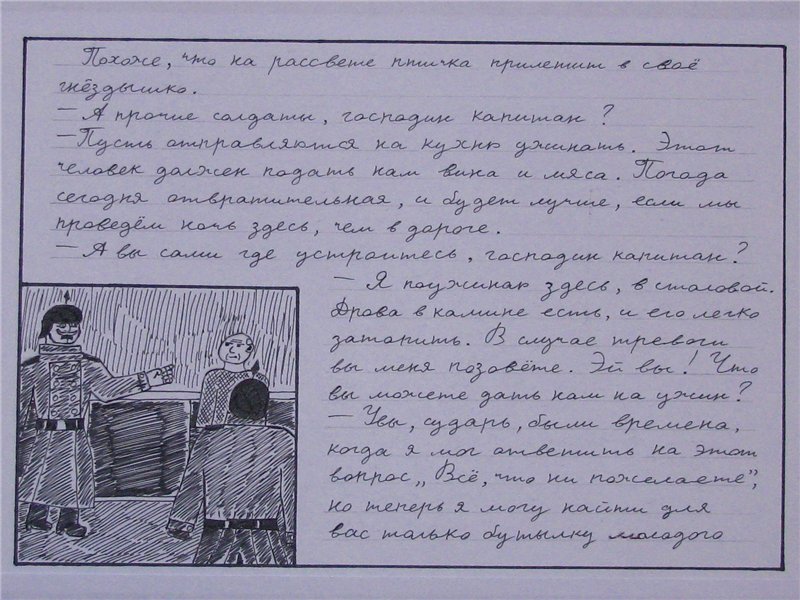 Похоже, что на рассвете птичка прилетит в своё
гнёздышко.
— А прочие солдаты, господин капитан?
— Пусть отправляются на кухню ужинать. Этот
человек должен подать нам вина и мяса. Погода
сегодня отвратительная, и будет лучше, если мы
проведём ночь здесь, чем в дороге.
— А вы сами где устроитесь, господин капитан?
— Я поужинаю здесь, в столовой.
Дрова в камине есть, и его легко
затопить. В случае тревоги
вы меня позовёте. Эй вы! Что
вы можете дать нам на ужин?
— Увы, сударь, были времена,
когда я мог ответить на этот
вопрос „Всё, что ни пожелаете”,
но теперь я могу найти для
вас только бутылку молодого